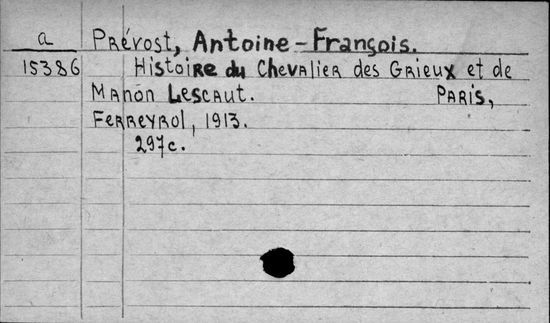 a Prévost, Antoine-François.
15386 Histoire du Chevalier des Grieux et de
Manon Lescaut. Paris,
Ferreyrol, 1913.
297c.